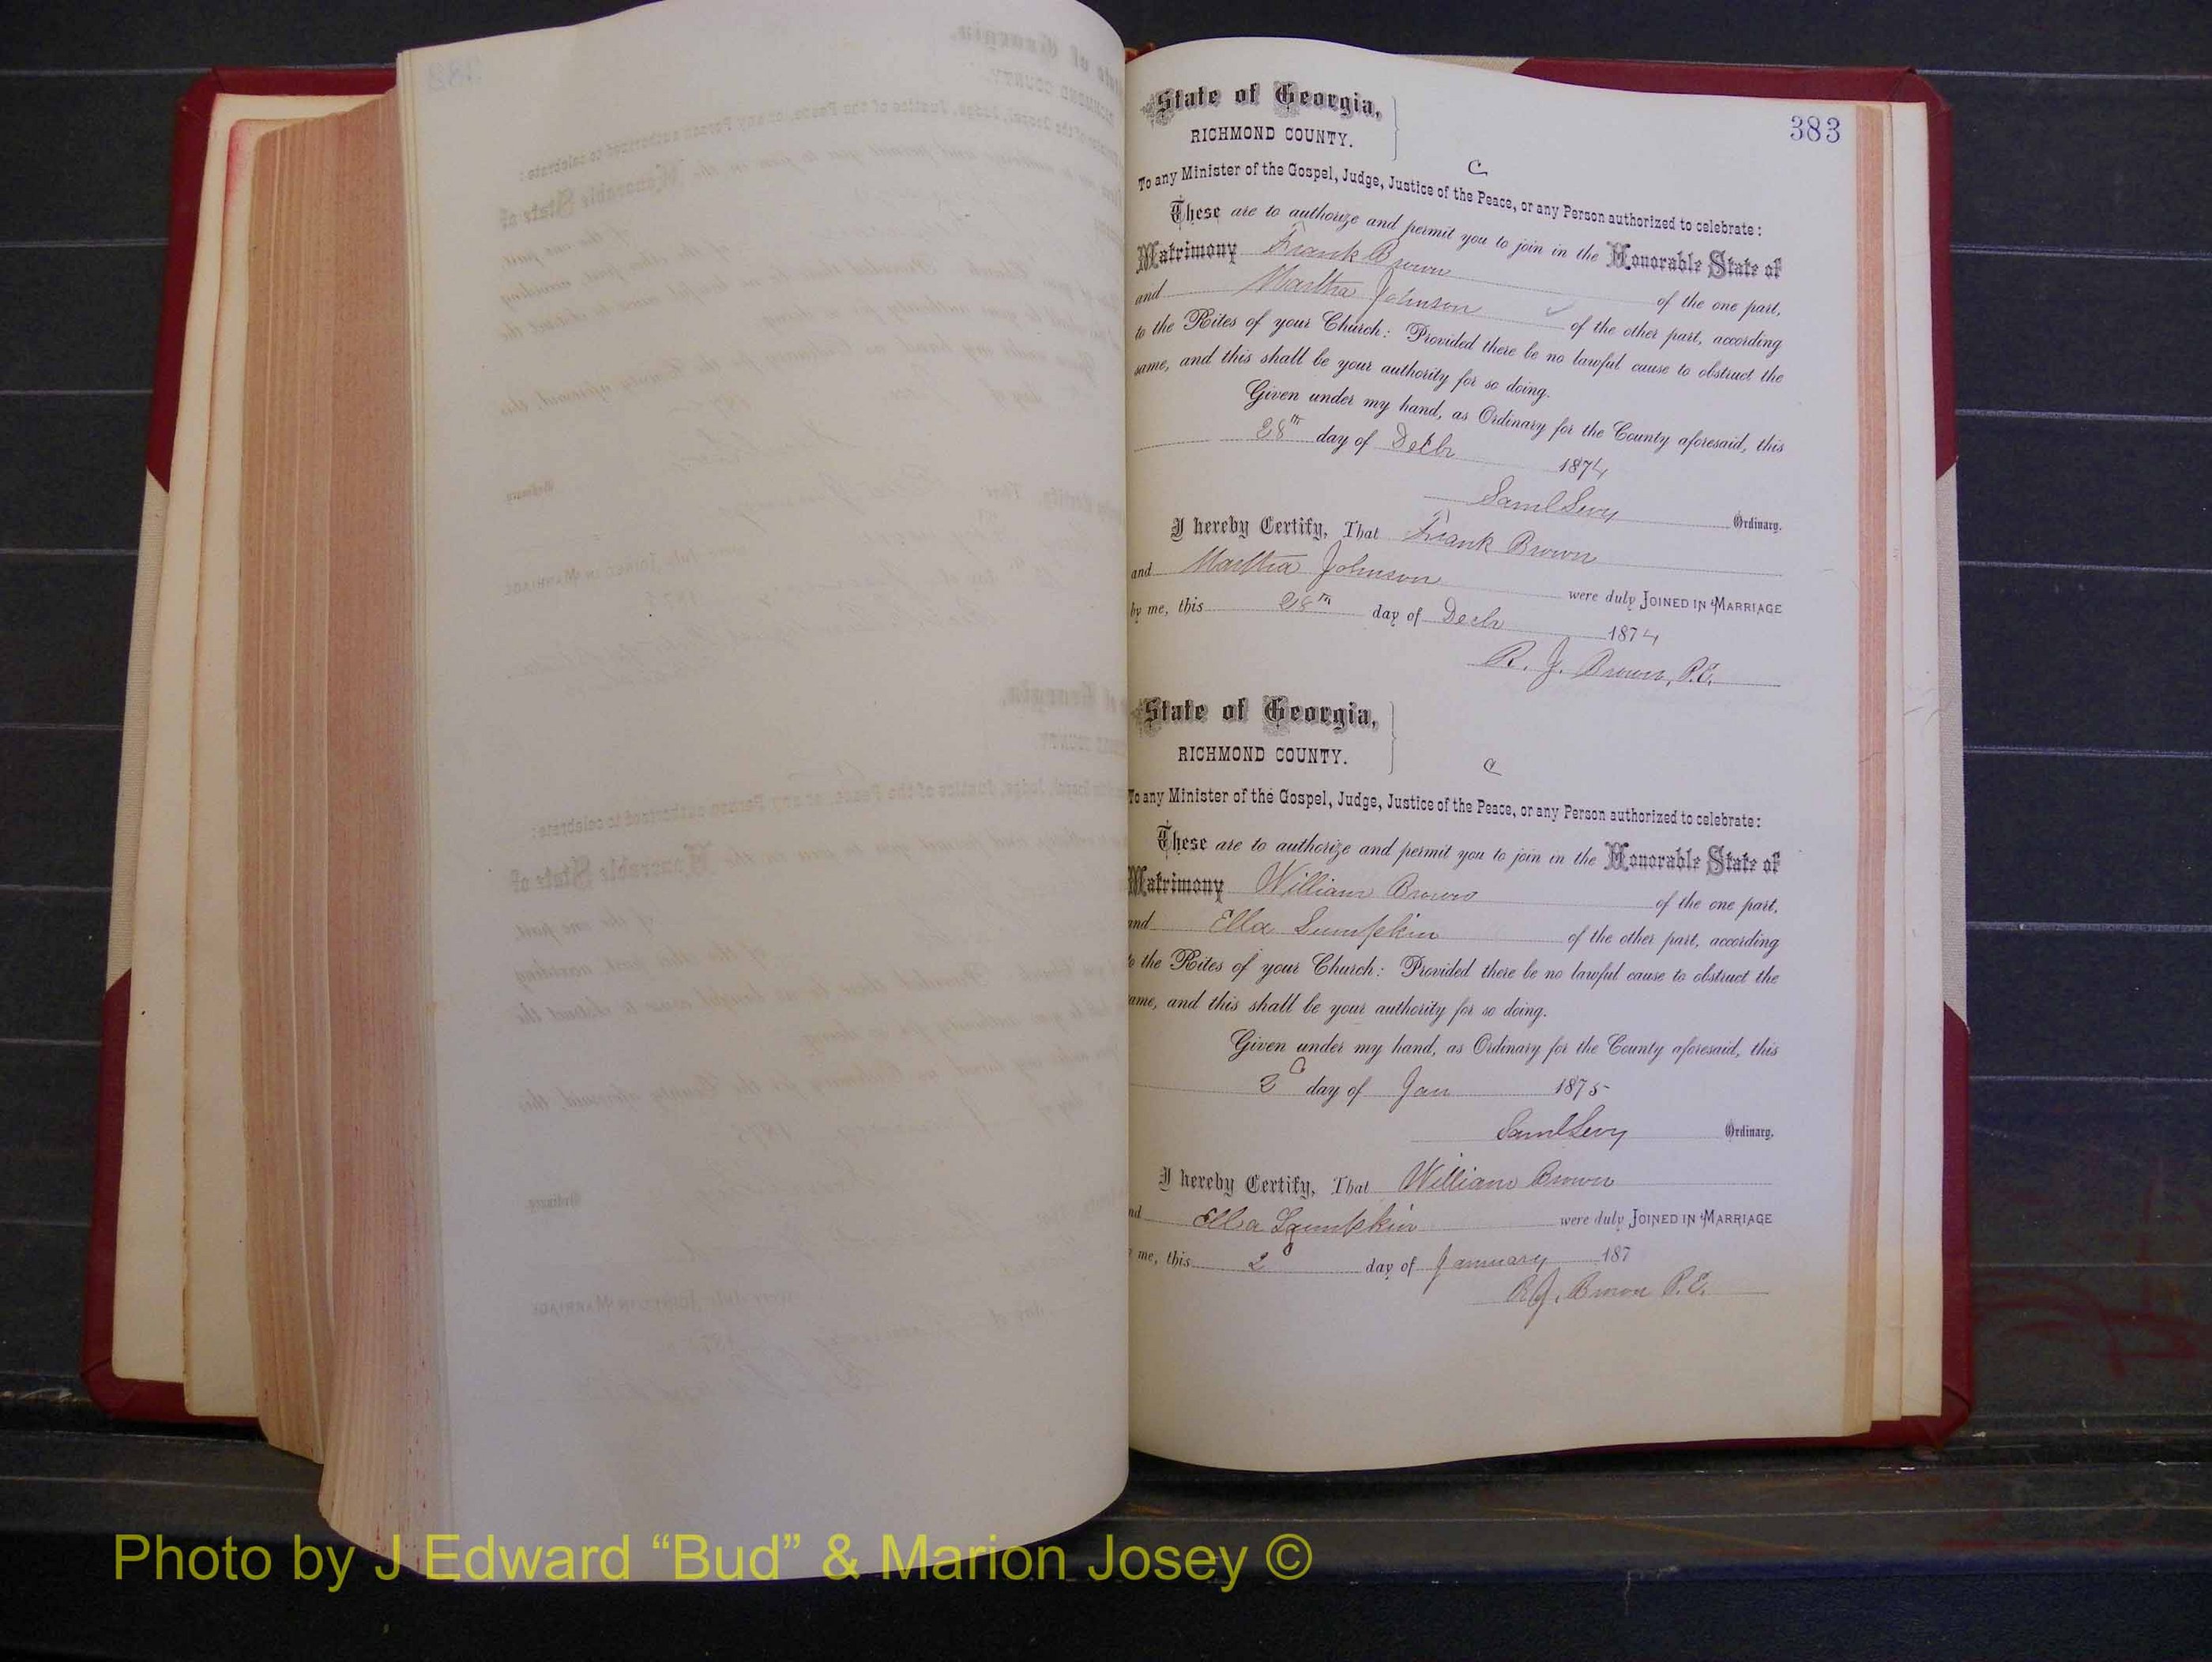 State of Georgia,
RICHMOND COUNTY.
383
C
To any Minister of the Gospel, Judge, Justice of the Peace, or any Person authorized to celebrate:
These are to authorize and permit you to join in the Honorable State of
Matrimony Frank Brown of the one part,
and Martha Johnson of the other part, according
to the Rites of your Church: Provided there be no lawful cause to obstruct the
same, and this shall be your authority for so doing.
Given under my hand, as Ordinary for the County aforesaid, this
28th day of Decbr 1874
Saml Levy Ordinary.
I hereby Certify, That Frank Brown
and Martha Johnson were duly JOINED IN MARRIAGE
by me, this 28th day of Decbr 1874
R. J. Brown, P.E.
State of Georgia,
RICHMOND COUNTY.
C
To any Minister of the Gospel, Judge, Justice of the Peace, or any Person authorized to celebrate:
These are to authorize and permit you to join in the Honorable State of
Matrimony William Brown of the one part,
and Ella Lumpkin of the other part, according
to the Rites of your Church: Provided there be no lawful cause to obstruct the
ame, and this shall be your authority for so doing.
Given under my hand, as Ordinary for the County aforesaid, this
2d day of Jan 1875
Saml Levy Ordinary.
I hereby Certify, That William Brown
nd Ella Lumpkin were duly JOINED IN MARRIAGE
me, this 2d day of January 187
R.J. Brown P.E.
Photo by J Edward “Bud” & Marion Josey ©